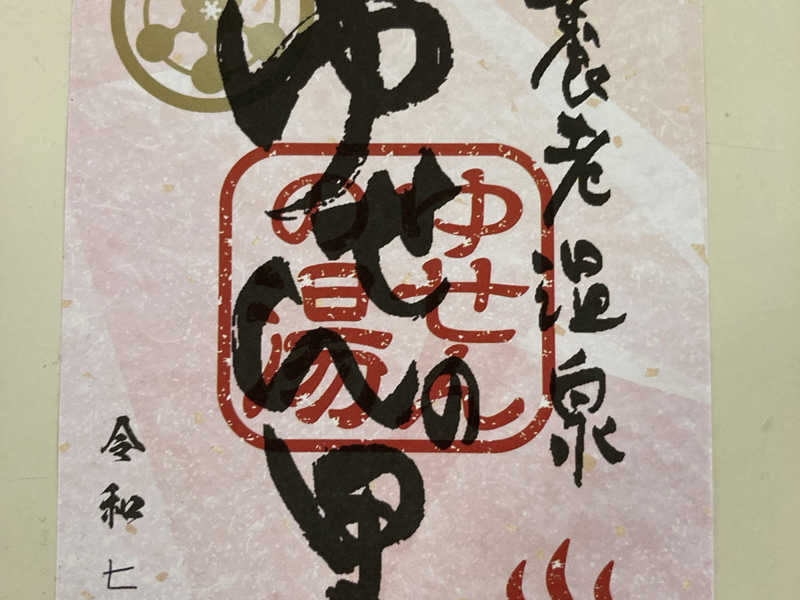 養老温泉
ゆせんの里
ゆせん
の湯
令和七